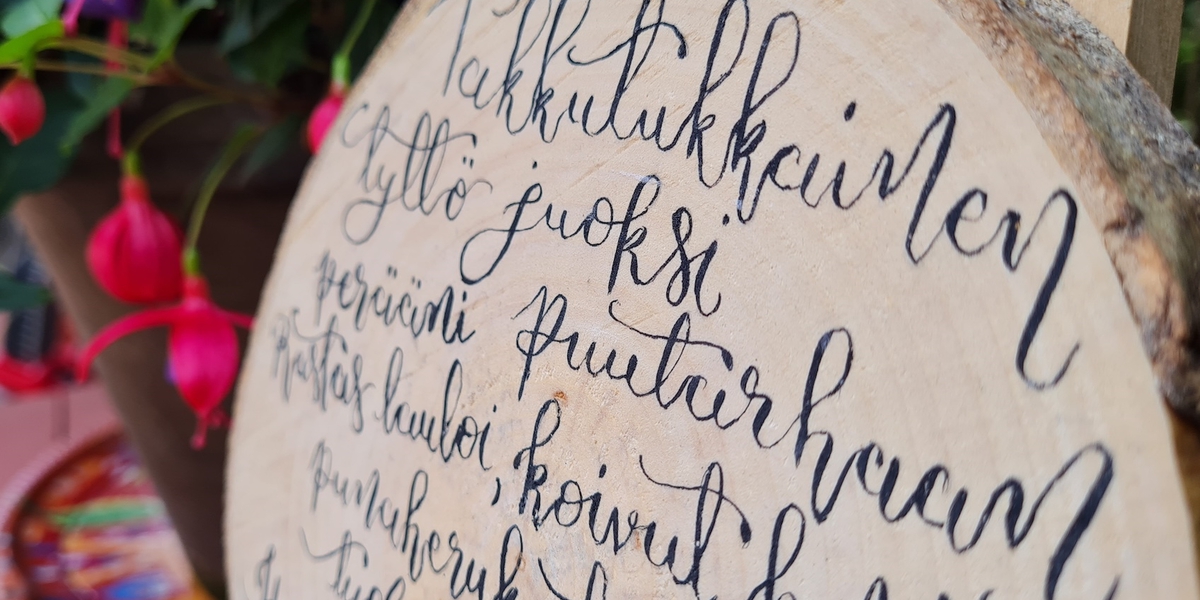 Takkutukkainen
tyttö juoksi
perääni puutarhaan
Rastas lauloi, koivut